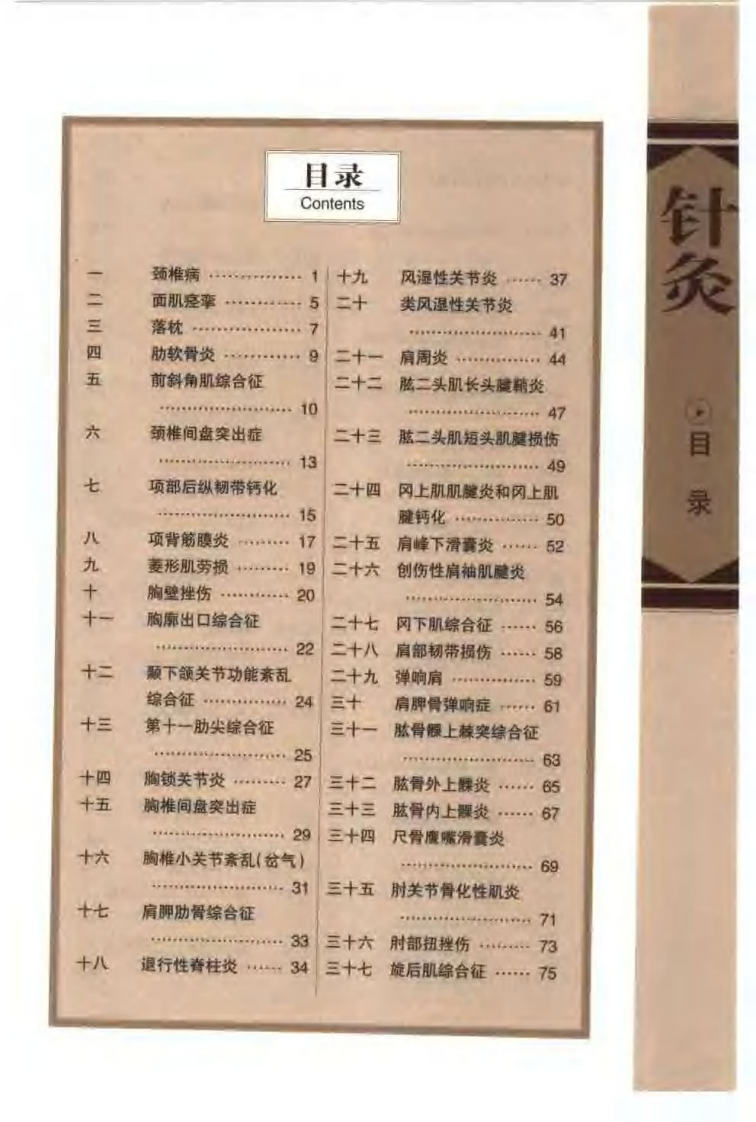 目录
Contents
一 颈椎病 ……………… 1
二 面肌痉挛 ………… 5
三 落枕 ……………… 7
四 肋软骨炎 ………… 9
五 前斜角肌综合征
………………… 10
六 颈椎间盘突出症
………………… 13
七 项部后纵韧带钙化
………………… 15
八 项背筋膜炎 ……… 17
九 菱形肌劳损 ……… 19
十 胸壁挫伤 ………… 20
十一 胸廓出口综合征
………………… 22
十二 颞下颌关节功能紊乱
综合征 …………… 24
十三 第十一肋尖综合征
………………… 25
十四 胸锁关节炎 ……… 27
十五 胸椎间盘突出症
………………… 29
十六 胸椎小关节紊乱(岔气)
………………… 31
十七 肩胛肋骨综合征
………………… 33
十八 退行性脊柱炎 …… 34
十九 风湿性关节炎 …… 37
二十 类风湿性关节炎
………………… 41
二十一 肩周炎 ………… 44
二十二 肱二头肌长头腱鞘炎
………………… 47
二十三 肱二头肌短头肌腱损伤
………………… 49
二十四 冈上肌肌腱炎和冈上肌
腱钙化 …………… 50
二十五 肩峰下滑囊炎 …… 52
二十六 创伤性肩袖肌腱炎
………………… 54
二十七 冈下肌综合征 …… 56
二十八 肩部韧带损伤 …… 58
二十九 弹响肩 ………… 59
三十 肩胛骨弹响症 …… 61
三十一 肱骨髁上棘突综合征
………………… 63
三十二 肱骨外上髁炎 …… 65
三十三 肱骨内上髁炎 …… 67
三十四 尺骨鹰嘴滑囊炎
………………… 69
三十五 肘关节骨化性肌炎
………………… 71
三十六 肘部扭挫伤 ……… 73
三十七 旋后肌综合征 …… 75
针灸
目录